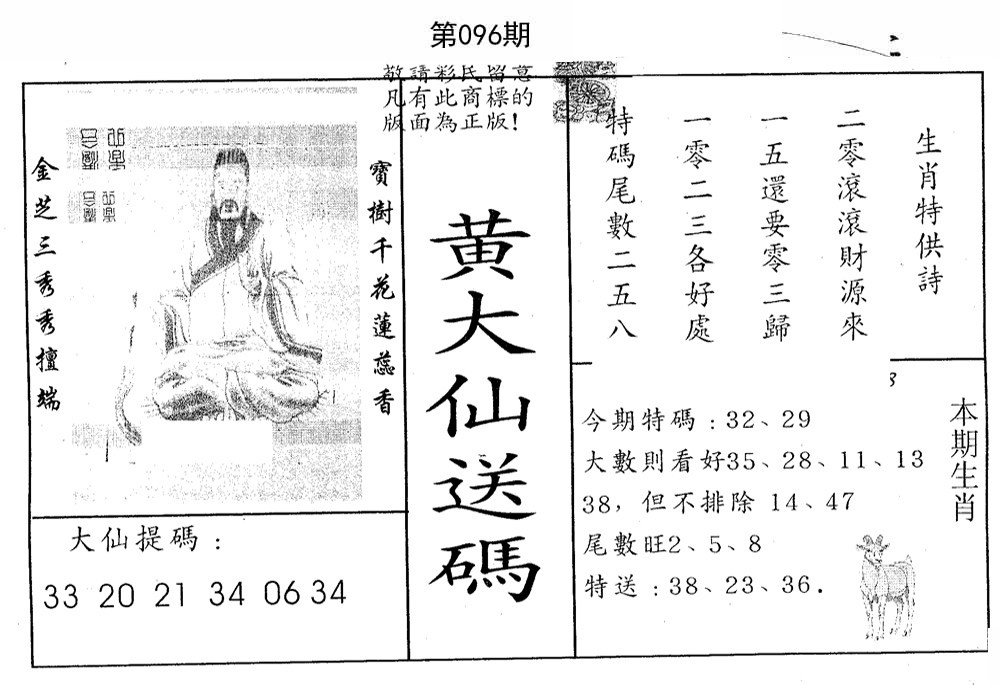 第096期
敬請彩民留意
凡有此商標的
版面為正版!
金芝三秀秀擅端
寶樹千花蓮蕊香
黄大仙送碼
大仙提碼:
33 20 21 34 06 34
生肖特供詩
二零滾滾財源來
一五還要零三歸
一零二三各好處
特碼尾數二五八
本期生肖
今期特碼:32、29
大數則看好35、28、11、13
38，但不排除 14、47
尾數旺2、5、8
特送:38、23、36.